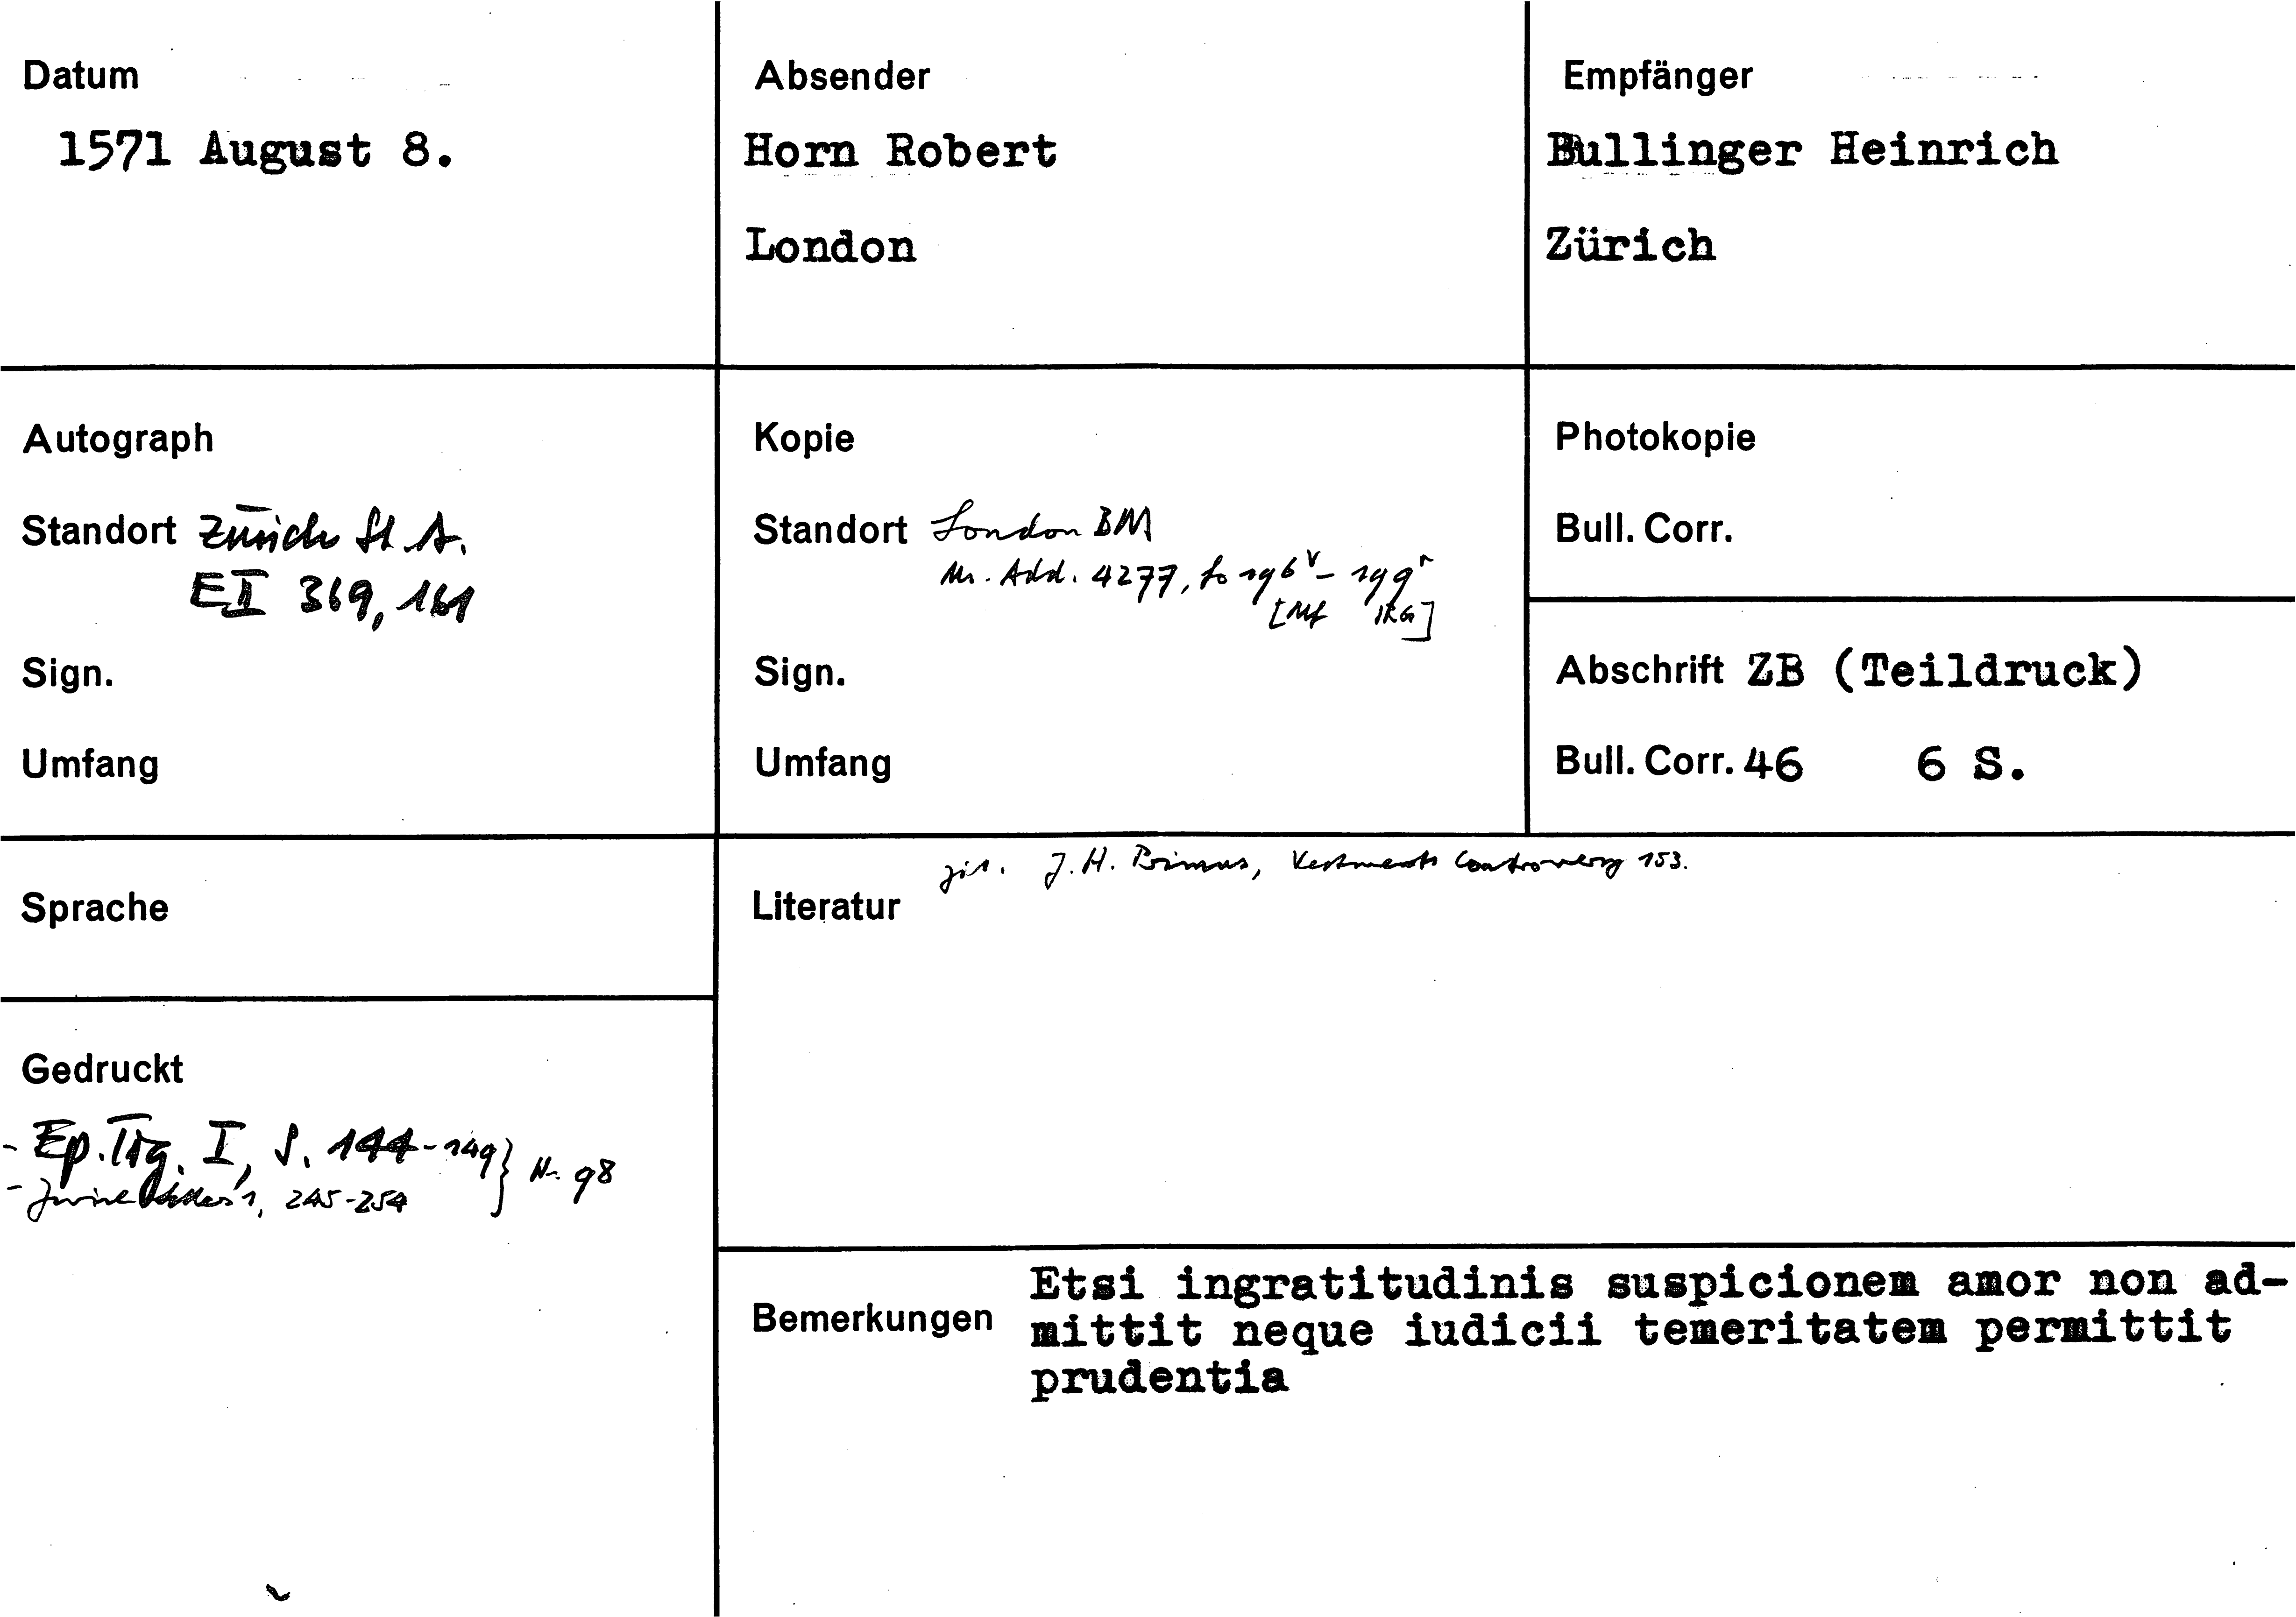 Datum
1571 August 8.
Absender
Horn Robert
London
Empfänger
Bullinger Heinrich
Zürich
Autograph
Standort Zürich St. A.
E II 369, 161
Sign.
Umfang
Kopie
Standort London BM
Ms. Add. 4277, fo 196v - 199r
[Mf IRG]
Sign.
Umfang
Photokopie
Bull. Corr.
Abschrift ZB (Teildruck)
Bull. Corr. 46 6 S.
Sprache
Gedruckt
- Ep. Tig. I, S. 144-149 } Nr. 98
- 1, 245-254
zit. J. H. Primus, Vestments Controversy 153.
Literatur
Bemerkungen
Etsi ingratitudinis suspicionem amor non ad-
mittit neque iudicii temeritatem permittit
prudentia